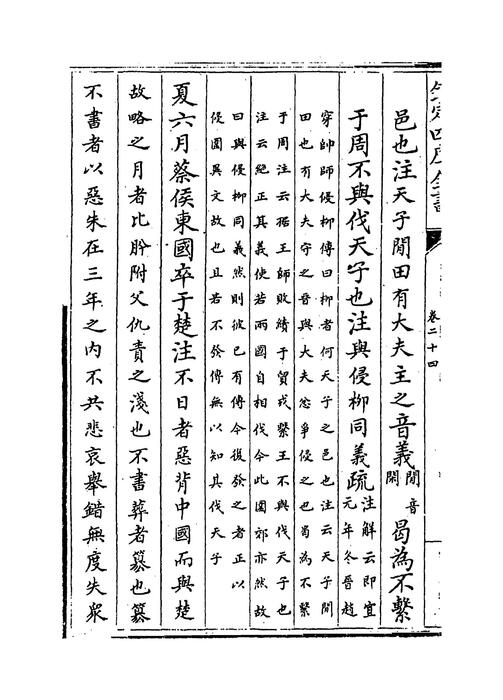 欽定四庫全書
卷二十四
邑也注天子閒田有大夫主之音義閒音閑曷為不繫
于周不與伐天子也注與侵柳同義疏注解云即宣元年冬晉趙
穿帥師侵柳傳曰柳者何天子之邑也注云天子閒
田也有大夫守之晉與大夫忿爭侵之也曷為不繫
于周注云据王師敗績于貿戎繫王不與伐天子也
注云絶正其義使若兩國自相伐今此圍郊亦然故
曰與侵柳同義然則彼已有傳今復發之者正以
侵圍異文故也且若不發傳無以知其伐天子
夏六月蔡侯東國卒于楚注不日者惡背中國而與楚
故略之月者比肸附父仇責之淺也不書葬者篡也篡
不書者以惡朱在三年之內不共悲哀舉錯無度失衆